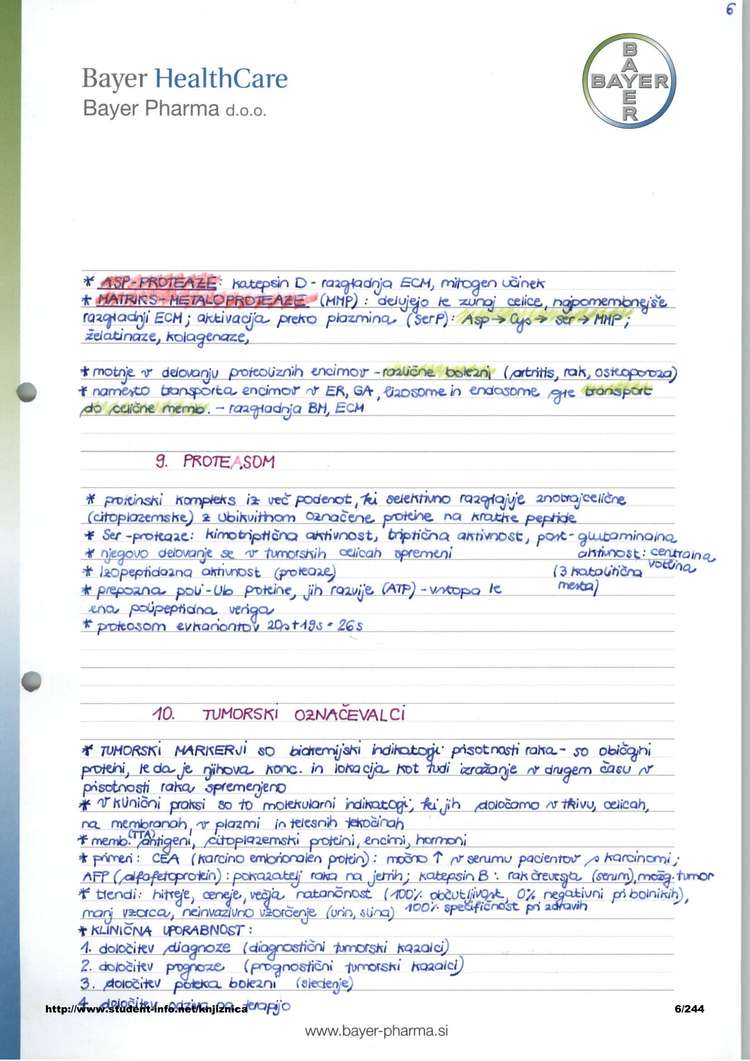 6
Bayer HealthCare
Bayer Pharma d.o.o.
BAYER
BAYER
* ASP-PROTEAZE: katepsin D - razgradnja ECM, mitogen učinek
* MATRIKS-METALOPROTEAZE (MMP): delujejo le zunaj celice, najpomembnejše
razgradnji ECM; aktivacija preko plazmina (SerP): Asp → Cys → Ser → MMP;
želatinaze, kolagenaze,
* motnje v delovanju proteoliznih encimov - različne bolezni (artritis, rak, osteoporoza)
* namesto transporta encimov v ER, GA, lizosome in endosome gre transport
do celične memb. - razgradnja BM, ECM
9. PROTEASOM
* proteinski kompleks iz več podenot, ki selektivno razgrajuje znotrajcelične
(citoplazemske) z ubikvitinom označene proteine na kratke peptide
* Ser-proteaze: kimotriptična aktivnost, triptična aktivnost, post-glutaminalna
* njegovo delovanje se v tumorskih celicah spremeni aktivnost: centralna
* Izopeptidazna aktivnost (proteaze) (3 katalitična votlina
* prepozna poli-Ub proteine, jih razvije (ATP) - vstopa le mesta)
ena polipeptidna veriga
* proteasom evkariontov 20s+19s = 26s
10. TUMORSKI OZNAČEVALCI
* TUMORSKI MARKERJI so biokemijski indikatorji prisotnosti raka - so običajni
proteini, le da je njihova konc. in lokacija kot tudi izražanje v drugem času v
prisotnosti raka spremenjeno
* v klinični praksi so to molekularni indikatorji, ki jih določamo v tkivu, celicah,
na membranah, v plazmi in telesnih tekočinah
* memb. (TTA) antigeni, citoplazemski proteini, encimi, hormoni
* primeri: CEA (karcino embrionalen protein): močno ↑ v serumu pacientov s karcinomi;
AFP (alfafetoprotein): pokazatelj raka na jetrih; katepsin B: rak črevesja (serum), možg. tumor
* trendi: hitreje, ceneje, večja natančnost (100% občutljivost, 0% negativni pri bolnikih),
manj vzorca, neinvazivno vzorčenje (urin, slina) 100% specifičnost pri zdravih
* KLINIČNA UPORABNOST:
1. določitev diagnoze (diagnostični tumorski kazalci)
2. določitev prognoze (prognostični tumorski kazalci)
3. določitev poteka bolezni (sledenje)
4. določitev odziva na terapijo
http://www.student-info.net/knjiznica 6/244
www.bayer-pharma.si